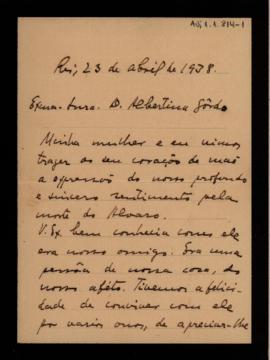 Rei, 23 de abril de 1938.
Exma. Snra. D. Albertina Gôrdo
Minha mulher e eu vimos
trazer ao seu coração de mãe
a expressão do nosso profundo
e sincero sentimento pela
morte do Alvaro.
V. Ex bem conhecia como ele
era nosso amigo. Era uma
pessôa de nossa casa, do
nosso afeto. Tivemos a felici-
dade de conviver com ele
por varios anos, de apreciar-lhe